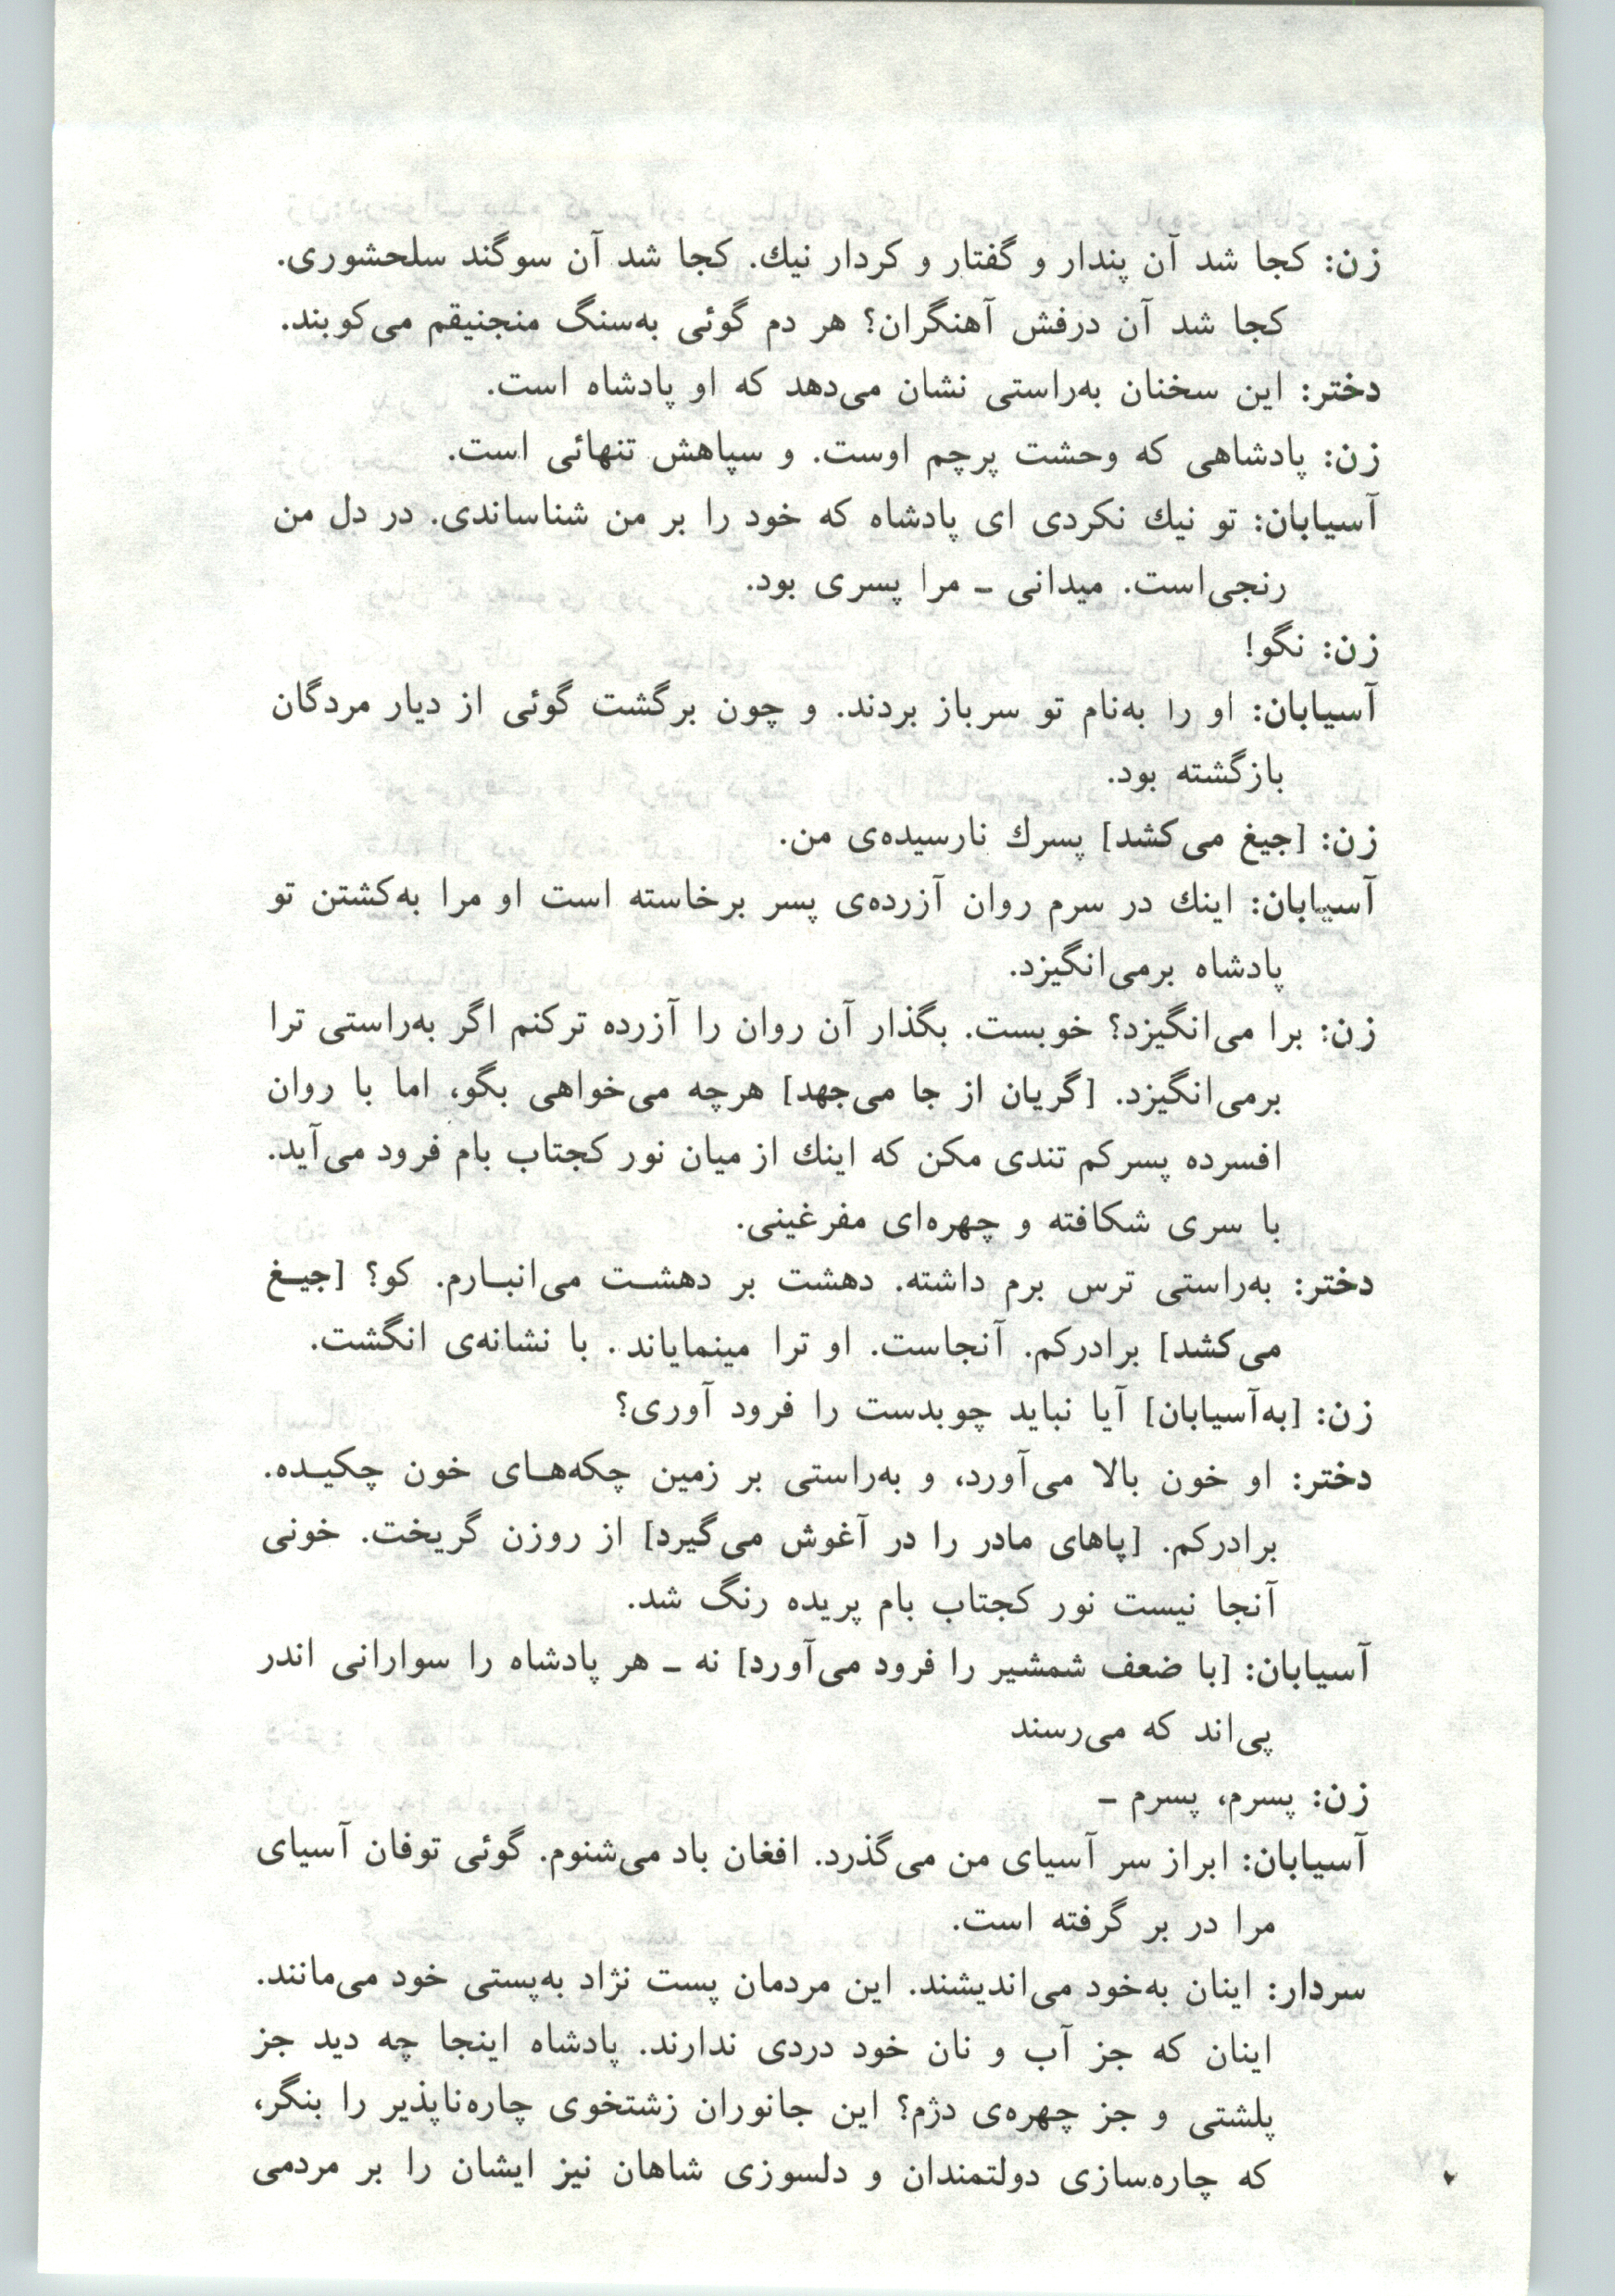 زن: کجا شد آن پندار و گفتار و کردار نیك. کجا شد آن سوگند سلحشوری.
کجا شد آن درفش آهنگران؟ هر دم گوئی به‌سنگ منجنیقم می‌کوبند.
دختر: این سخنان به‌راستی نشان می‌دهد که او پادشاه است.
زن: پادشاهی که وحشت پرچم اوست. و سپاهش تنهائی است.
آسیابان: تو نیك نکردی ای پادشاه که خود را بر من شناساندی. در دل من
رنجی‌است. میدانی ـ مرا پسری بود.
زن: نگو!
آسیابان: او را به‌نام تو سرباز بردند. و چون برگشت گوئی از دیار مردگان
بازگشته بود.
زن: [جیغ می‌کشد] پسرك نارسیده‌ی من.
آسیابان: اینك در سرم روان آزرده‌ی پسر برخاسته است او مرا به‌کشتن تو
پادشاه برمی‌انگیزد.
زن: برا می‌انگیزد؟ خوبست. بگذار آن روان را آزرده ترکنم اگر به‌راستی ترا
برمی‌انگیزد. [گریان از جا می‌جهد] هرچه می‌خواهی بگو، اما با روان
افسرده پسرکم تندی مکن که اینك از میان نور کجتاب بام فرود می‌آید.
با سری شکافته و چهره‌ای مفرغینی.
دختر: به‌راستی ترس برم داشته. دهشت بر دهشـت می‌انبـارم. کو؟ [جیـغ
می‌کشد] برادرکم. آنجاست. او ترا مینمایاند. با نشانه‌ی انگشت.
زن: [به‌آسیابان] آیا نباید چوبدست را فرود آوری؟
دختر: او خون بالا می‌آورد، و به‌راستی بر زمین چکه‌هـای خون چکیـده.
برادرکم. [پاهای مادر را در آغوش می‌گیرد] از روزن گریخت. خونی
آنجا نیست نور کجتاب بام پریده رنگ شد.
آسیابان: [با ضعف شمشیر را فرود می‌آورد] نه ـ هر پادشاه را سوارانی اندر
پی‌اند که می‌رسند
زن: پسرم، پسرم ـ
آسیابان: ابراز سر آسیای من می‌گذرد. افغان باد می‌شنوم. گوئی توفان آسیای
مرا در بر گرفته است.
سردار: اینان به‌خود می‌اندیشند. این مردمان پست نژاد به‌پستی خود می‌مانند.
اینان که جز آب و نان خود دردی ندارند. پادشاه اینجا چه دید جز
پلشتی و جز چهره‌ی دژم؟ این جانوران زشتخوی چاره‌ناپذیر را بنگر،
که چاره‌سازی دولتمندان و دلسوزی شاهان نیز ایشان را بر مردمی